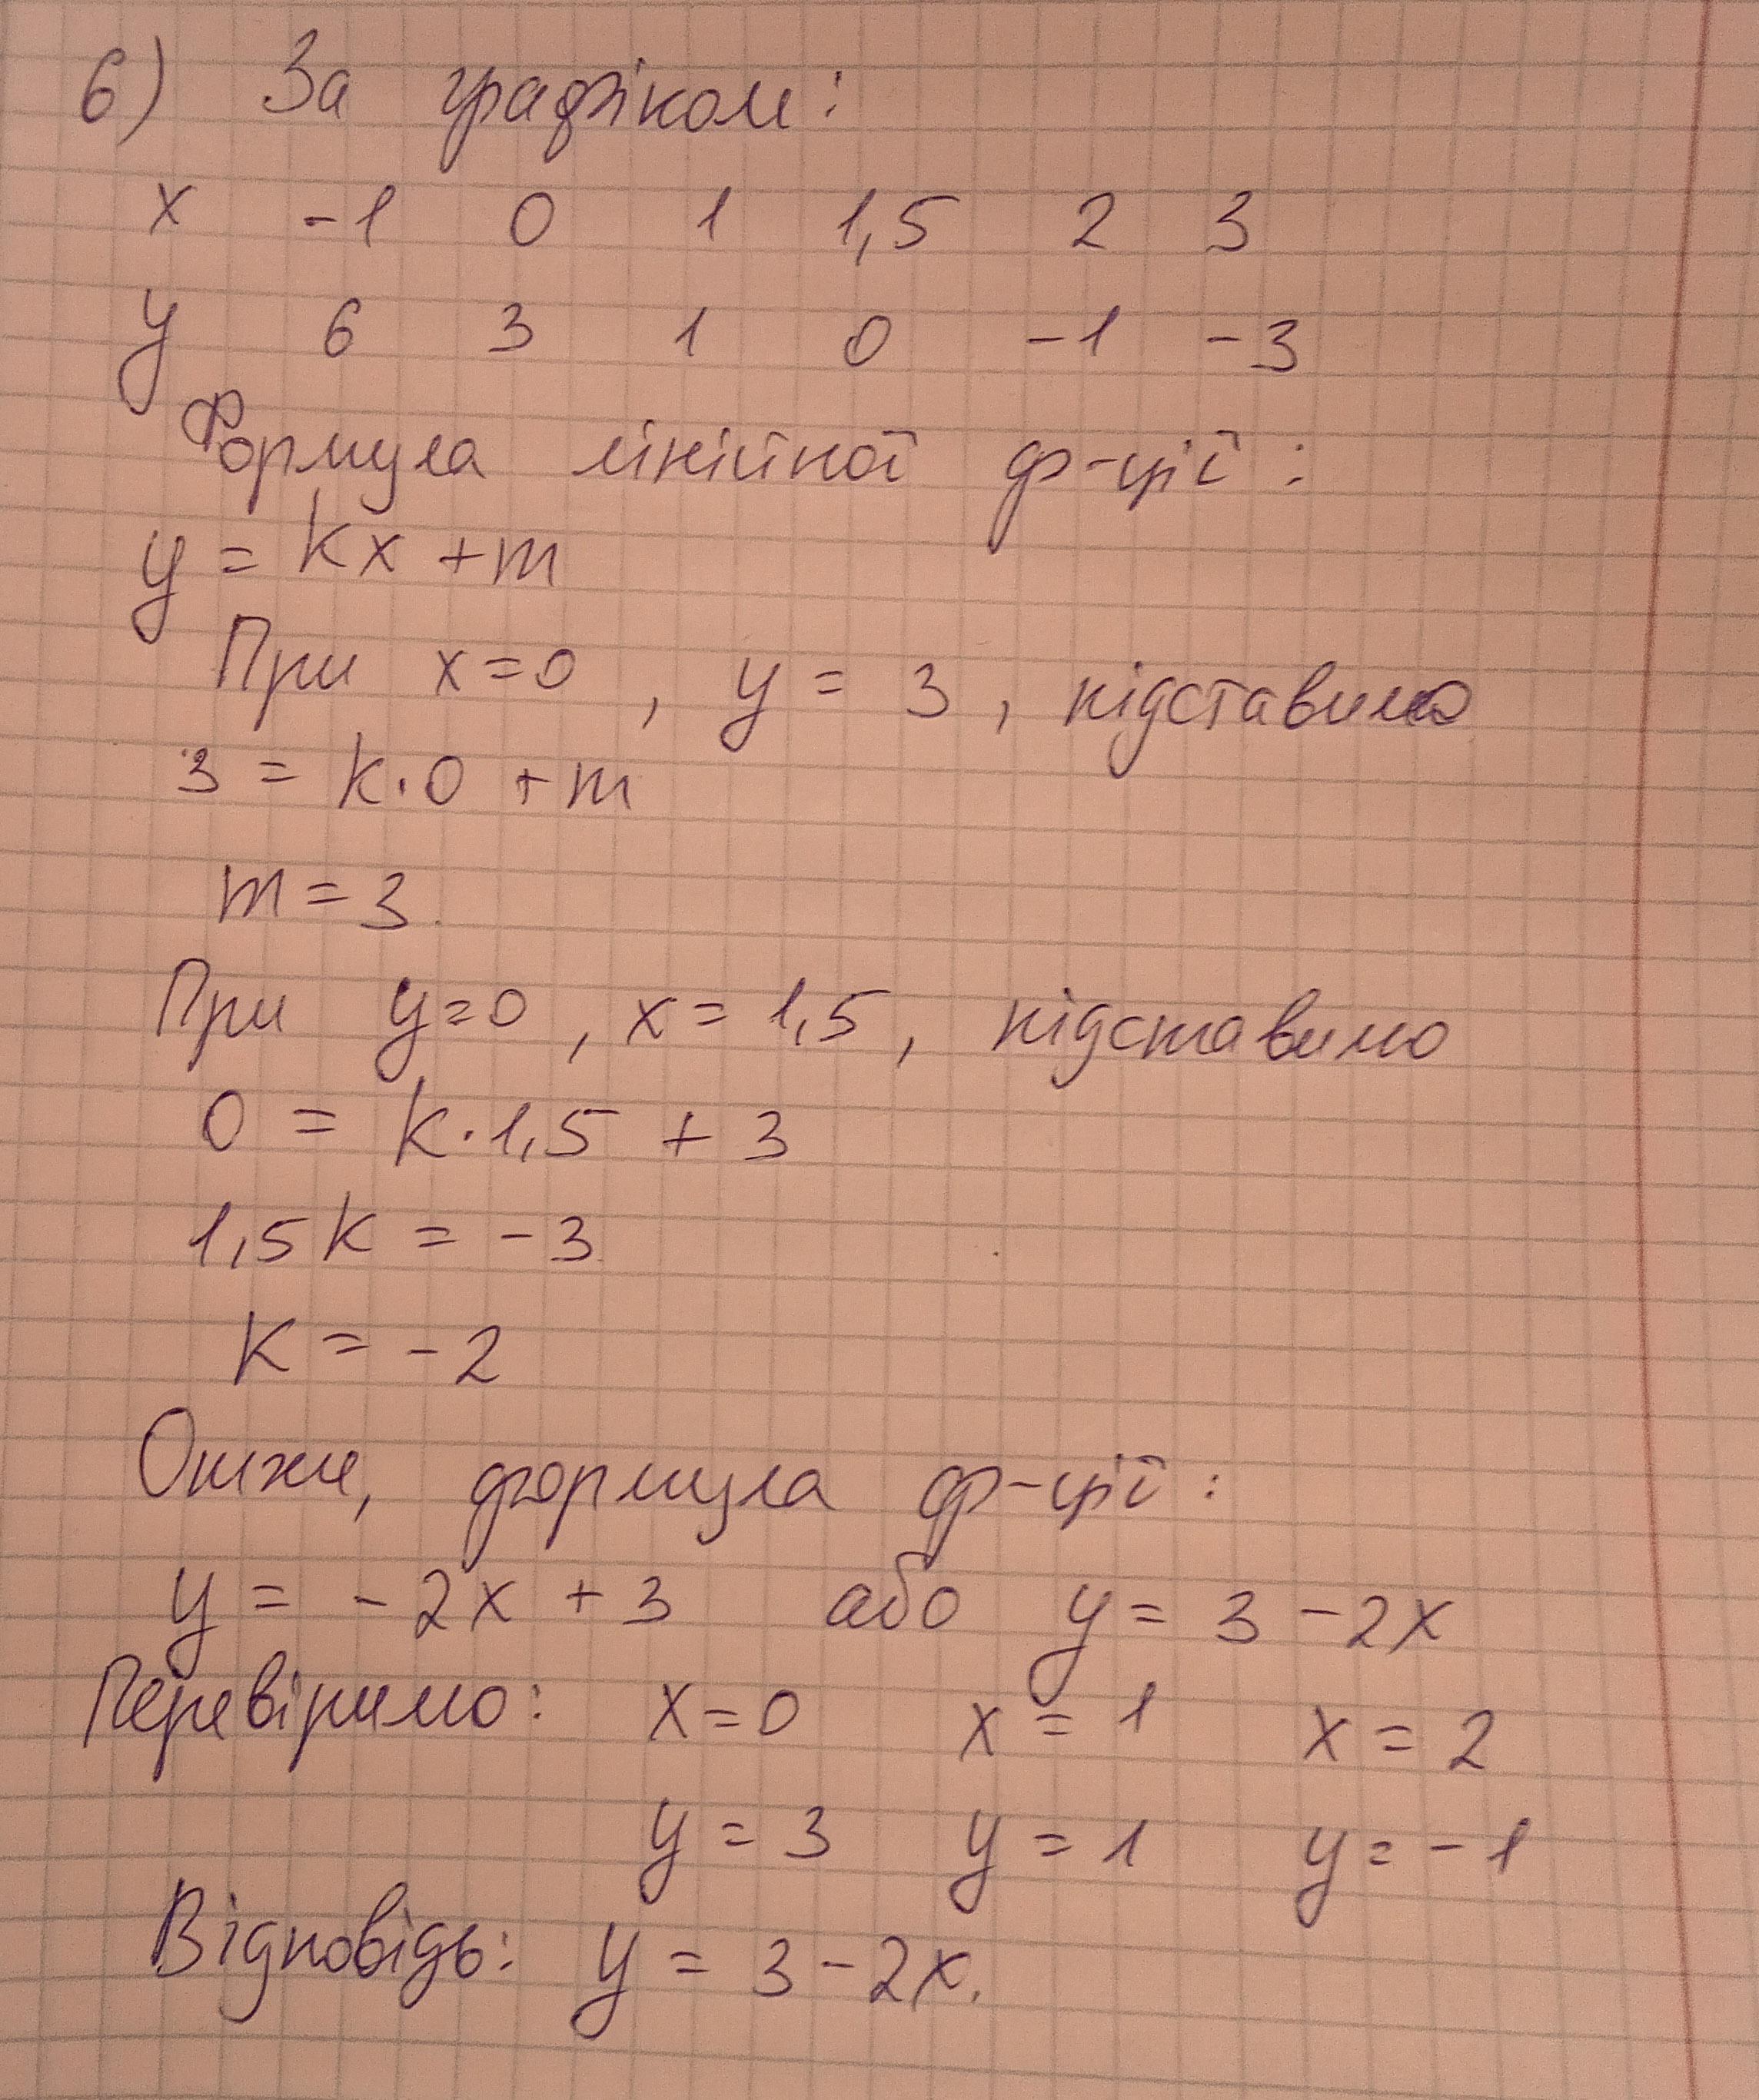 6) За графіком:
x -1 0 1 1,5 2 3
y 6 3 1 0 -1 -3
Формула лінійної ф-ції:
y = kx + m
При x=0, y = 3, підставимо
3 = k·0 + m
m = 3
При y=0, x = 1,5, підставимо
0 = k·1,5 + 3
1,5k = -3
k = -2
Отже, формула ф-ції:
y = -2x + 3 або y = 3 - 2x
Перевіримо: x=0 x = 1 x = 2
y = 3 y = 1 y = -1
Відповідь: y = 3 - 2x.